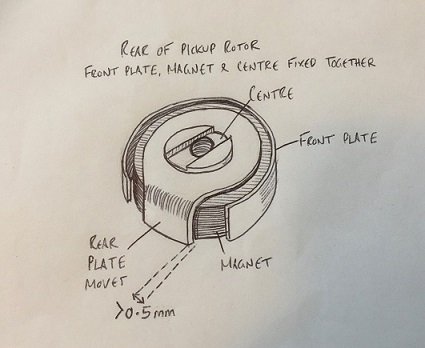 REAR OF PICKUP ROTOR
FRONT PLATE, MAGNET & CENTRE FIXED TOGETHER
CENTRE
FRONT PLATE
REAR
PLATE
MOVES
MAGNET
>0.5mm